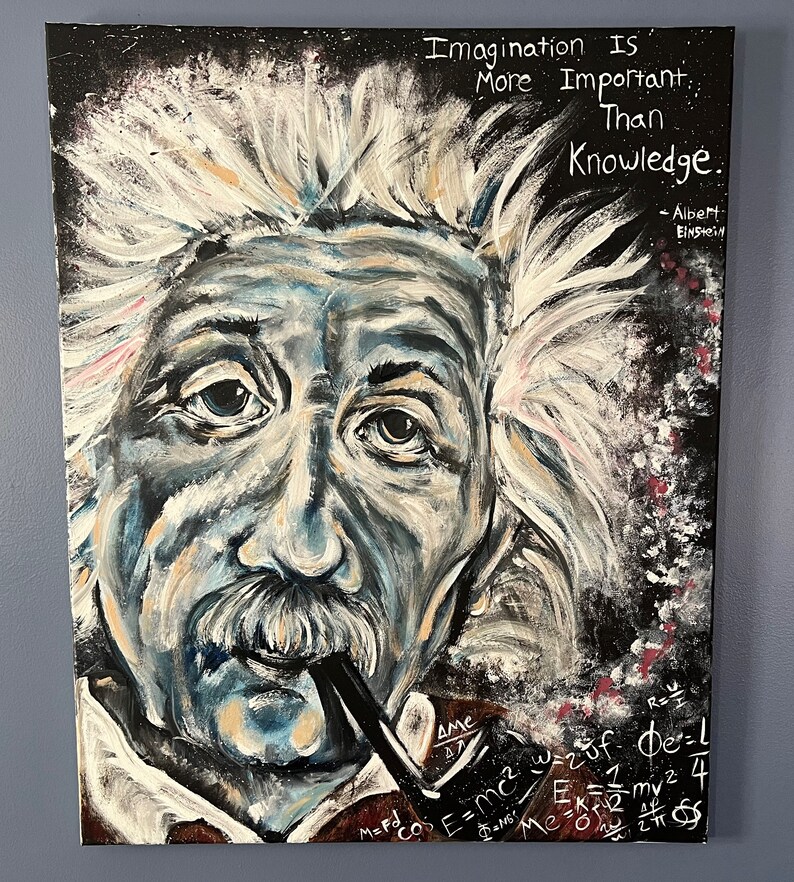 Imagination Is
More Important
Than
Knowledge.
- Albert
EINStein
R=U/I
ΔMe/Δλ
w=2πf
Φe=L/4
E=mc²
E=1/2 mv²
M=Fd cos
Φ=NBS
Me=